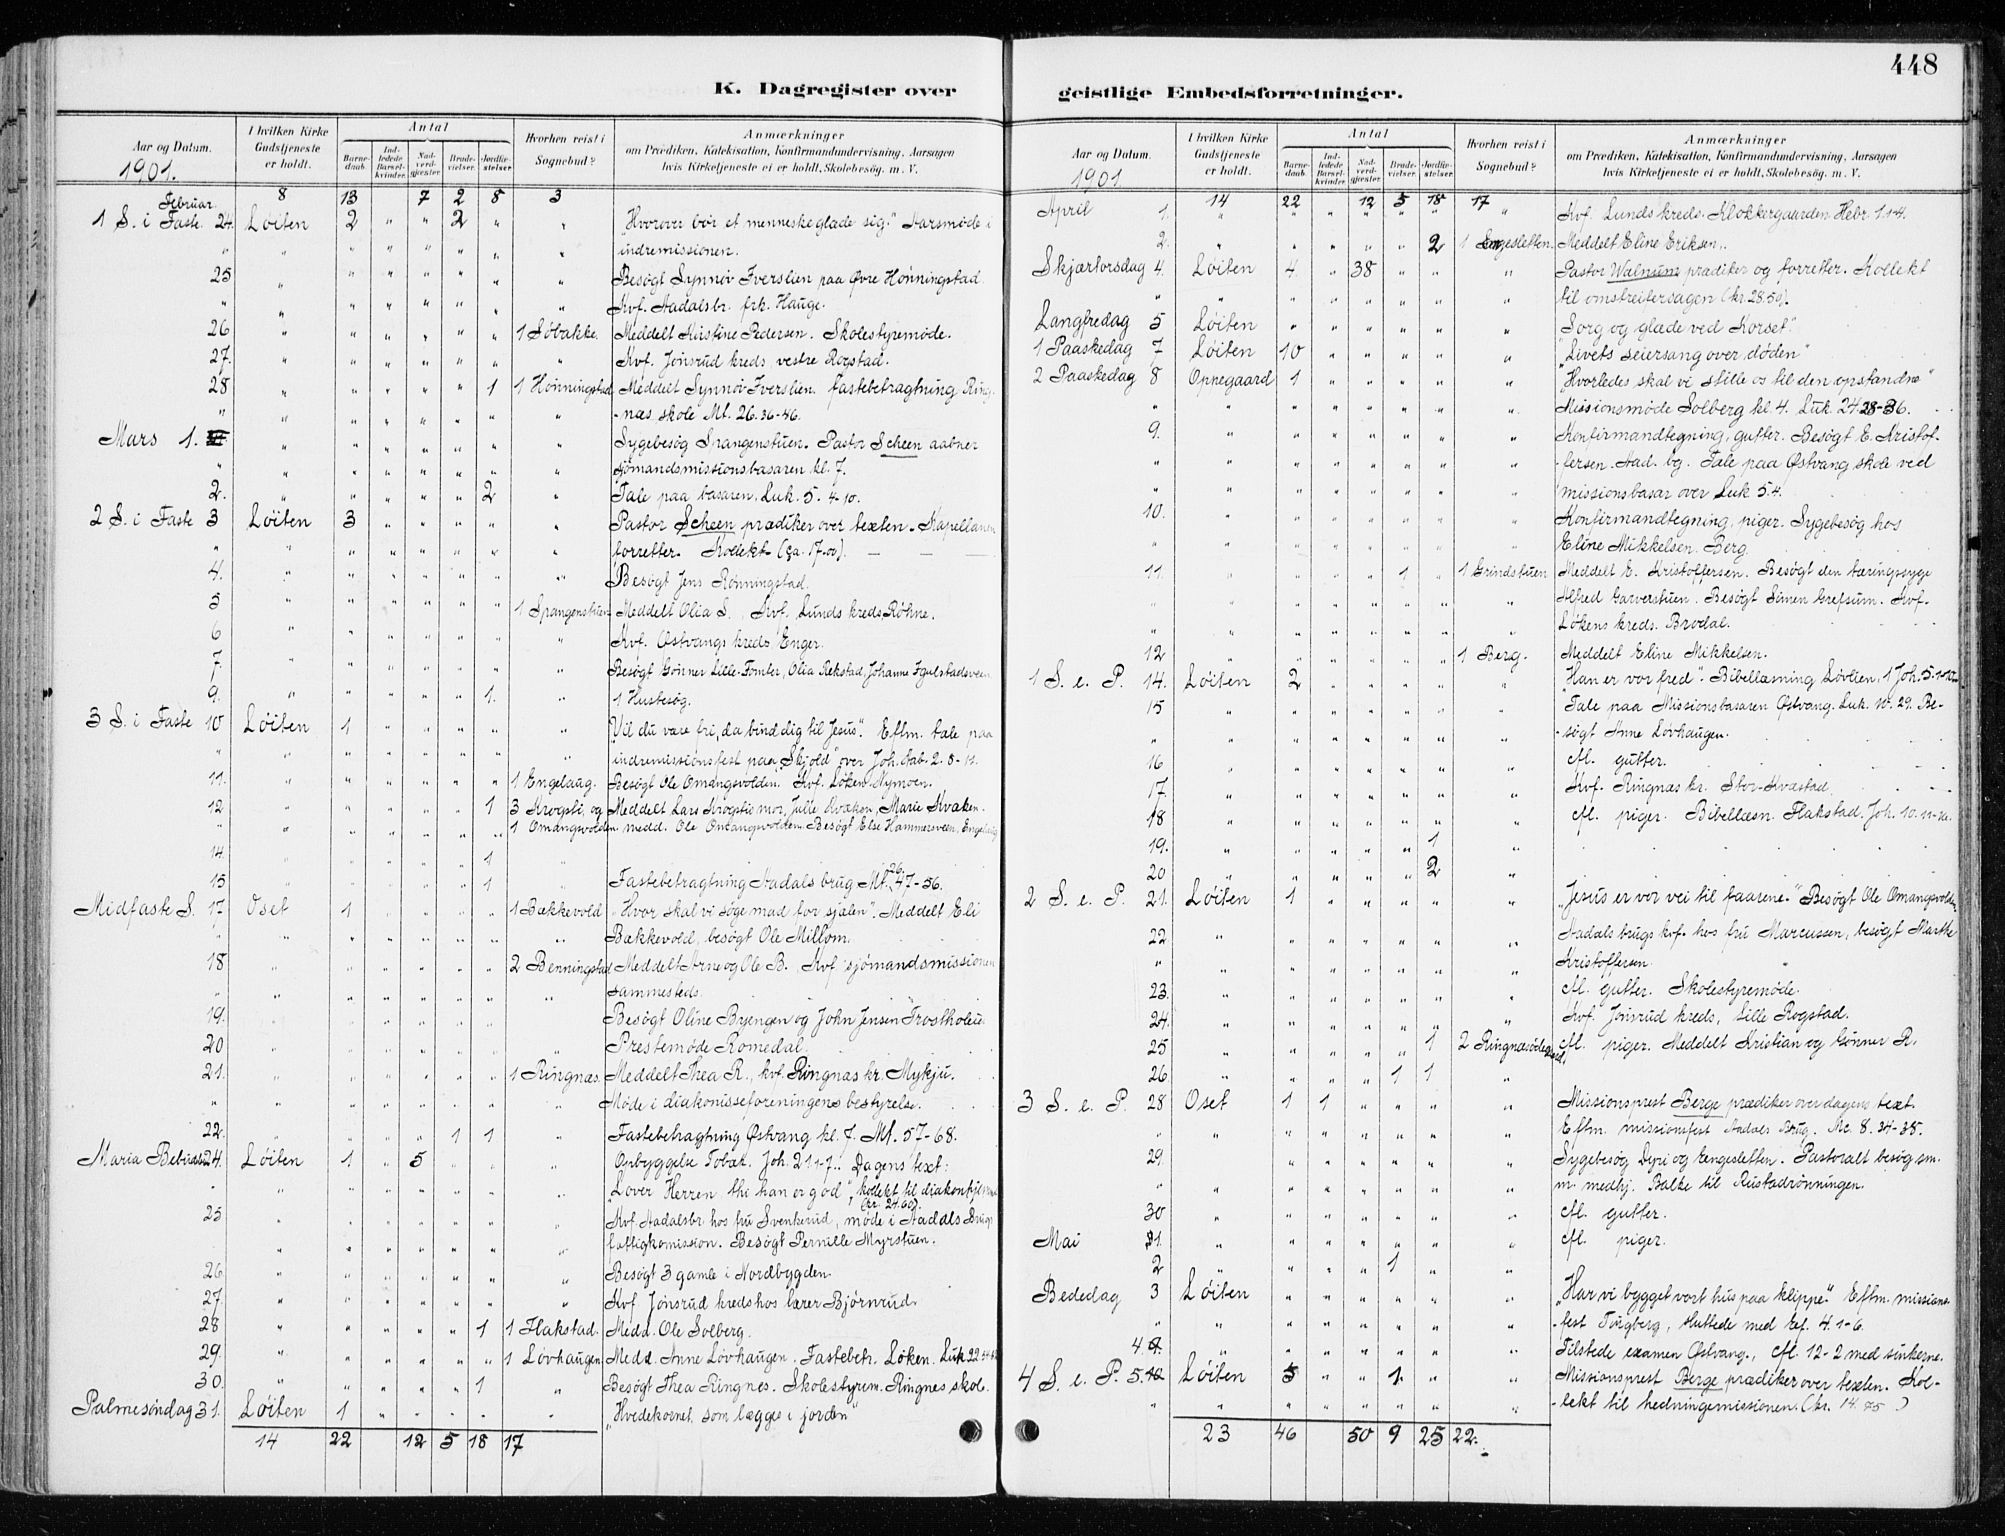 448
K. Dagregister over geistlige Embedsforretninger.
Aar og Datum. 1901.
I hvilken Kirke Gudstjeneste er holdt.
Antal
Barnedaab.
Indledede Barselkvinder.
Nadverdgjæster.
Brudevielser.
Jordfæstelser.
Hvorhen reist i Sognebud?
Anmærkninger
om Prædiken, Katekisation, Konfirmandundervisning, Aarsagen
hvis Kirketjeneste ei er holdt, Skolebesøg. m. V.
Februar. 8 13 7 2 8 3
1 S. i Faste. 24. Løiten 2 " " 2 " " "Hvorover bør et menneske glæde sig." Aarsmøde i
indremissionen.
25 Besøgt Synnør Iverslien paa Øvre Hønningstad
Kvf. Aadalsbr. frk. Hauge.
26 1 Søbakke. Meddelt Kristine Pedersen. Skolestyremøde.
27. Kvf. Jønsrud kreds, vestre Rogstad.
28 1 1 Hønningstad Meddelt Synnør Iverslien. Fastebetragtning Ring-
-næs skole Mt. 26. 36-46.
Mars 1. Sygebesøg Sprangenstuen. Pastor Scheen aabner
sjømandsmissionsbasaren kl. 7.
2. 2 Tale paa basaren. Luk. 5. 4-10.
2 S. i Faste 3 Løiten 3 Pastor Scheen prædiker over texten. Kapellanen
forretter. Kollekt (ca. 17.00).
4. Besøgt Jens Rønningstad.
5 1 Sprangenstuen Meddelt Olia S. Kvf. Lunds kreds Røhne.
6 Kvf. Østvangs kreds Enger.
7. Besøgt Gønner Lille-Fomler, Olia Rekstad, Johanne Igulstadsveen
9. 1. 1 Husbesøg.
3 S. i Faste 10 Løiten 1 "Vil du være fri, da bind dig til Jesus". Eftm. tale paa
indremissionsfest paa "Skjold" over Joh. Aab. 2. 8-11.
11. 1 Engelaug. Besøgt Ole Omangsvolden. Kvf. Løken Nymoen.
12 1 3 Krogsti, og Meddelt Lars Krogstis mor, Julle Kvæken, Marie Kvæken.
1 Omangsvolden medd. Ole Omangsvolden. Besøgt Else Hammersveen, Engelaug
14. 1
15 1 Fastebetragtning Aadals brug Mt. 26 47-56.
Midfaste S. 17 Oset 1 1 Bækkevold "Hvor skal vi søge mad for sjælen". Meddelt Eli
Bækkevold, besøgt Ole Millom.
18 2 Benningstad Meddelt Arne og Ole B. Kvf. sjømandsmissionen
sammesteds.
19. Besøgt Oline Byengen og John Jensen Trostholen.
20 Prestemøde Romedal.
21. 1 Ringnæs. Meddelt Thea R., kvf. Ringnæs kr. Mykju.
Møde i diakonisseforeningens bestyrelse.
22. 1 1 Fastebetragtning Østvang kl. 7. Mt. 57-68.
Maria Bebudelse 24. Løiten 1 5 Opbyggelse Tobæk. Joh. 21 1-7. Dagens text:
"Lover Herren thi han er god", kollekt til diakonhjemmet
(kr. 24.60).
25 Kvf. Aadalsbr. hos fru Svenkerud, møde i Aadals Brugs
fattigkomission. Besøgt Pernille Myrstuen.
26 Besøgt 3 gamle i Nordbygden.
27 Kvf. Jønsrud kreds hos lærer Bjørnrud.
28 1 1 Flakstad. Medd. Ole Solberg.
29. 1 Løvhaugen Medd. Anne Løvhaugen. Fastebetr. Løken. Luk 22
30. 1 Besøgt Thea Ringnes. Skolestyrem. Ringnes skole.
Palmesøndag 31. Løiten 1 "Hvedekornet som lægges i jorden"
14 22 12 5 18 17
Aar og Datum. 1901
I hvilken Kirke Gudstjeneste er holdt.
Antal
Barnedaab.
Indledede Barselkvinder.
Nadverdgjæster.
Brudevielser.
Jordfæstelser.
Hvorhen reist i Sognebud?
Anmærkninger
om Prædiken, Katekisation, Konfirmandundervisning, Aarsagen
hvis Kirketjeneste ei er holdt, Skolebesøg. m. V.
14 22 12 5 18 17
April 1. Kvf. Lunds kreds. Klokkergaarden Hebr. 1. 1-4.
2. 2 1 Engesletten. Meddelt Eline Eriksen.
Skjærtorsdag 4. Løiten 4 38 Pastor Walnum prædiker og forretter. Kollekt
til omstreifersagen (kr. 28.50).
Langfredag 5 Løiten "Sorg og glæde ved Korset."
1 Paaskedag 7 Løiten 10 "Livets seiersang over døden"
2 Paaskedag 8 Oppegaard 1 "Hvorledes skal vi stille os til den opstandne"
Missionsmøde Solberg kl. 4. Luk. 24 28-36.
9. Konfirmandtegning, gutter. Besøgt E. Kristof-
-fersen. Aad. bg. Tale paa Østvang skole ved
missionsbasar over Luk 5.4.
10. Konfirmandtegning, piger. Sygebesøg hos
Eline Mikkelsen. Berg.
11. 1 1 Grindstuen Meddelt E. Kristoffersen. Besøgt den tæringssyge
Alfred Garverstuen. Besøgt Simen Grefsum. Kvf.
Løkens kreds. Brodal.
12 1 Berg. Meddelt Eline Mikkelsen.
1 S. e. P. 14. Løiten 2 "Han er vor fred". Bibellæsning Løvlien, 1 Joh. 5. 1-12
15 Tale paa Missionsbasaren Østvang. Luk. 10. 29. Be-
-søgt Anne Løvhaugen.
16 cfl. gutter.
17 Kvf. Ringnæs kr. Stor-Kvæstad
18 cfl. piger. Bibellæsn. Flakstad. Joh. 10. 11-
19. 1
20 2
2 S. e. P. 21. Løiten 1 "Jesus er vor vei til faarene." Besøgt Ole Omangsvolden
22 Aadals brugs kvf. hos fru Marcussen, besøgt Marthe
Kristoffersen.
23. cfl. gutter. Skolestyremøde.
24. Kvf. Jønsrud kreds, Lille Rogstad.
25 1 2 Ringnæsødegaard. cfl. piger. Meddelt Kristian og Gønner R.
26 1 1
3 S. e. P. 28 Oset 1 1 Missionsprest Berge prædiker over dagens text.
Eftm. missionsfest Aadals Brug. Mc. 8. 34-38.
29. Sygebesøg Dyri og Engesletten. Pastoralt besøg sm.
m. medhj. Balke til Rustadrønningen.
30 cfl. gutter.
Mai 1. cfl. piger.
2 1
Bededag 3 Løiten "Har vi bygget vort hus paa klippe." Eftm. missions-
-fest Tingberg, sluttede med Ef. 4. 1-6.
4 Tilstede examen Østvang., cfl. 12-2 med sinkerne.
4 S. e. P. 5. Løiten 5 1 Missionsprest Berge prædiker over texten. Kol-
-lekt til hedningemissionen. (kr. 14.75)
23 46 50 9 25 22.